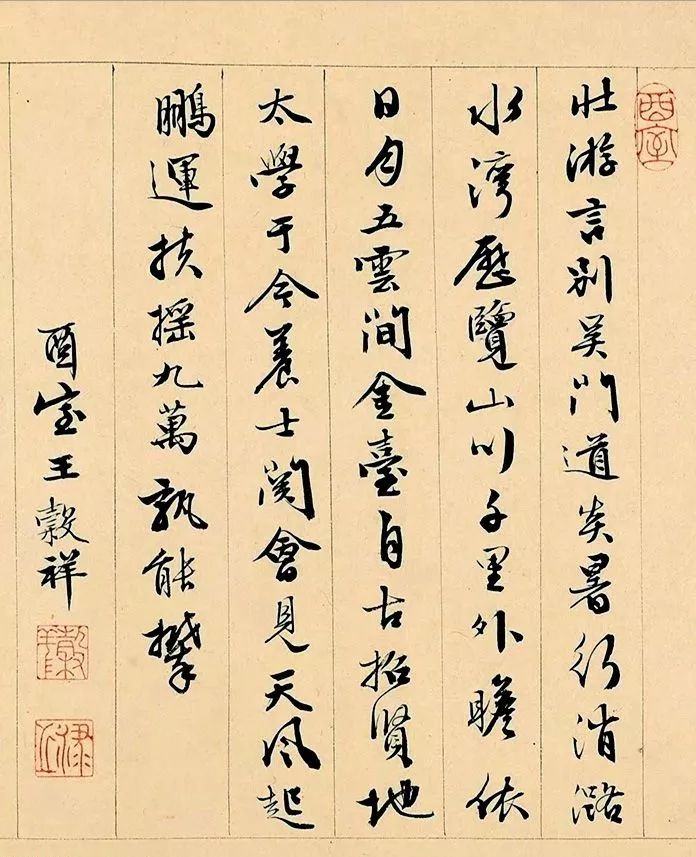 酉室
壯游言別吴門道炎暑行消潞
水灣歷覽山川千里外瞻依
日月五雲間金臺自古招賢地
太學于今養士関會見天風起
鵬運扶摇九萬孰能攀
酉室王榖祥
榖祥
祿之